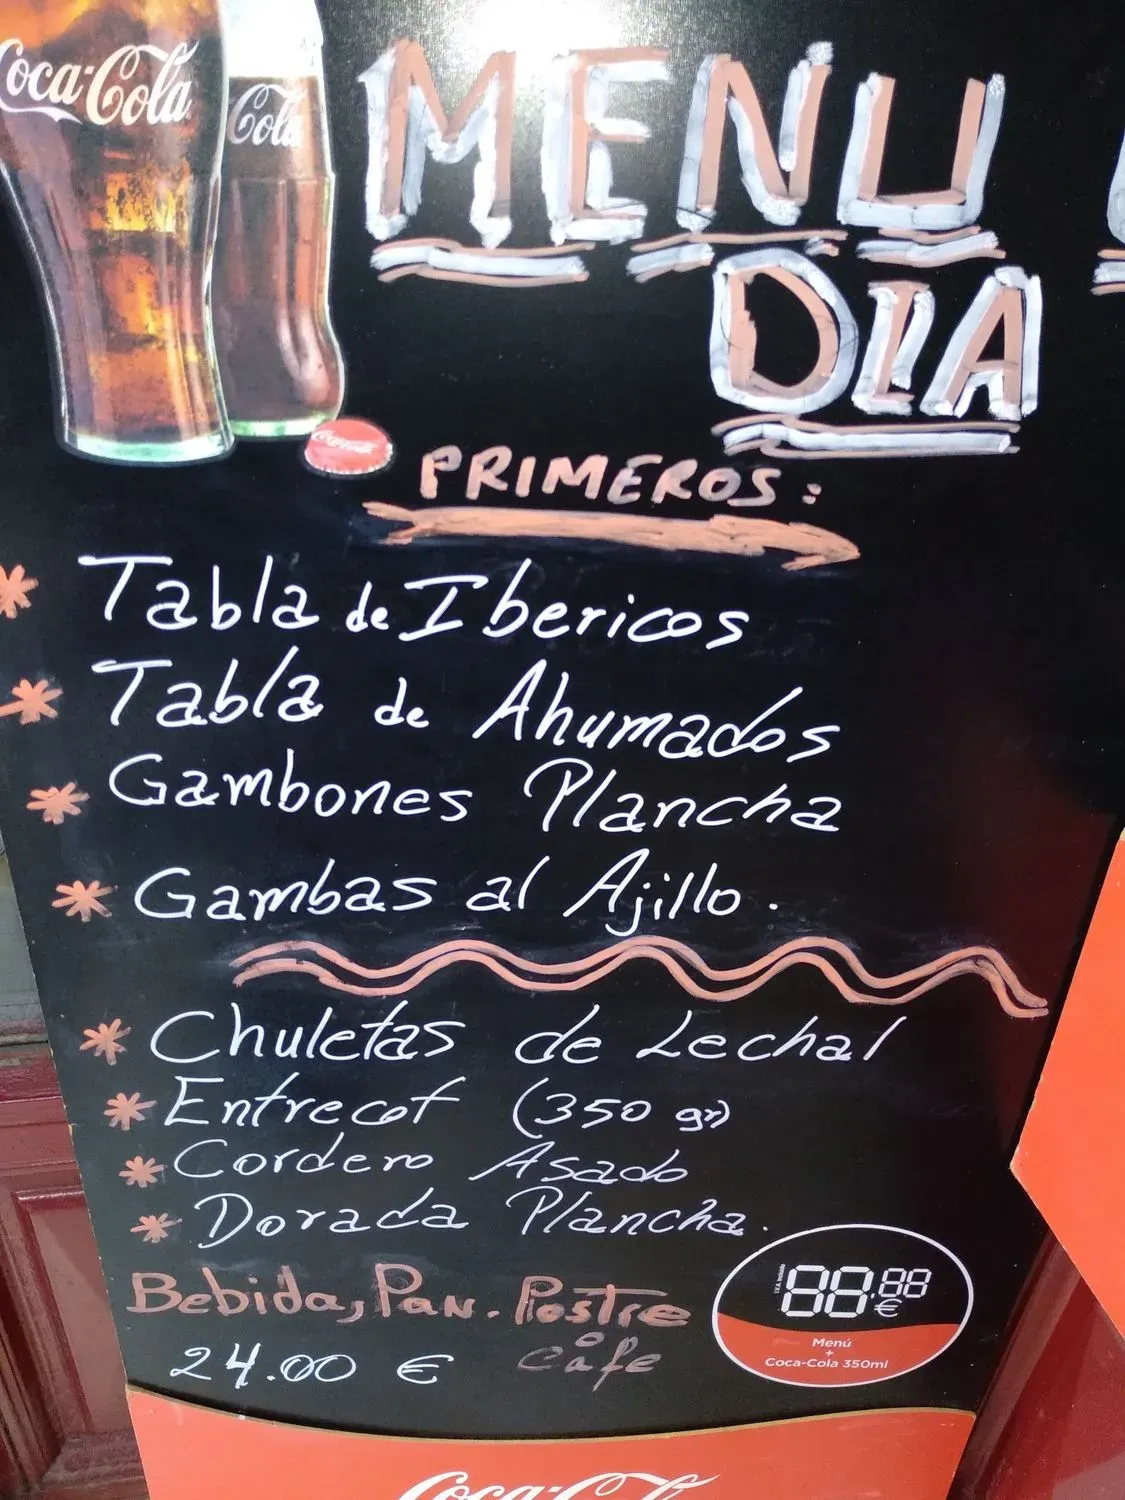 Coca-Cola
Cola
MENU
DIA
Coca-Cola
PRIMEROS:
* Tabla de Ibericos
* Tabla de Ahumados
* Gambones Plancha
* Gambas al Ajillo.
* Chuletas de Lechal
* Entrecot (350 gr)
* Cordero Asado
* Dorada Plancha.
Bebida, Pan. Postre
o
24.00 € Cafe
88.88 €
Menú
+
Coca-Cola 350ml
Coca-Cola